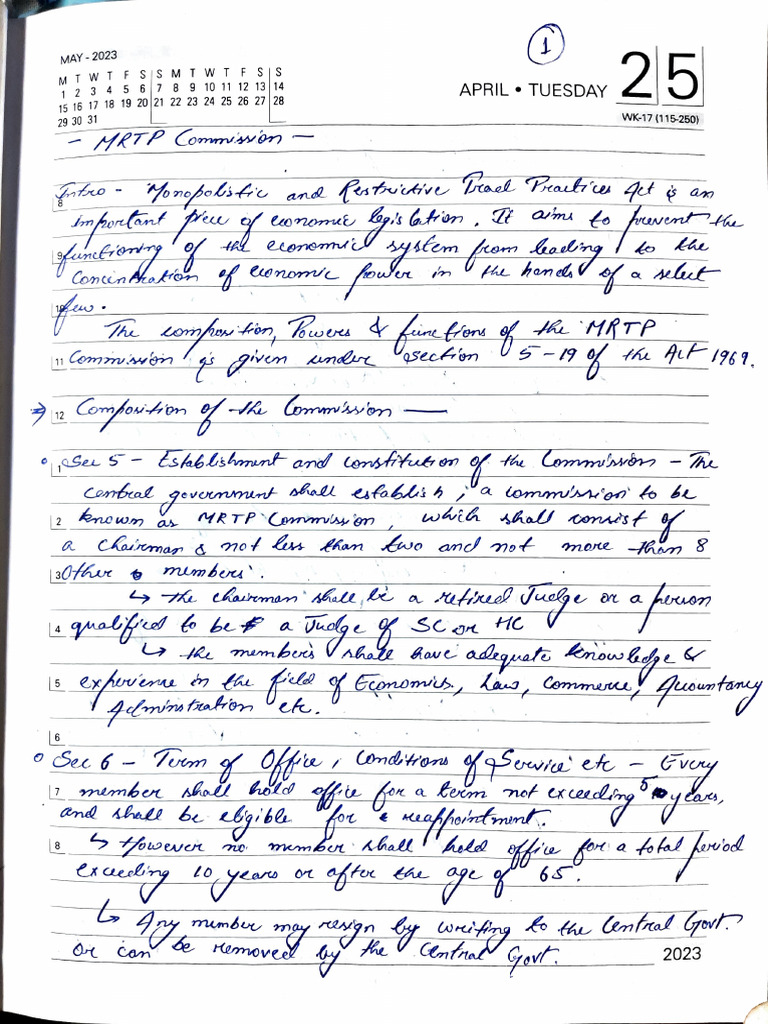 1
MAY - 2023
M T W T F S S M T W T F S S
1 2 3 4 5 6 7 8 9 10 11 12 13 14
15 16 17 18 19 20 21 22 23 24 25 26 27 28
29 30 31
APRIL • TUESDAY 25
WK-17 (115-250)
- MRTP Commission -
Intro - Monopolistic and Restrictive Trael Practices Act is an
8
important piece of economic legislation. It aims to prevent the
9 functioning of the economic system from leading to the
Concentration of economic power in the hands of a select
10 few.
The composition, Powers & functions of the MRTP
11 Commission is given under section 5-19 of the Act 1969.
⇒ 12 Composition of the Commission —
1 Sec 5 - Establishment and constitution of the Commission - The
central government shall establish, a commission to be
2 known as MRTP Commission, which shall consist of
a Chairman & not less than two and not more than 8
3 Other members.
↳ the chairman shall be a retired Judge or a person
4 qualified to be a Judge of SC or HC
↳ the members shall have adequate knowledge &
5 experience in the field of Economics, Law, Commerce, Accountancy
Adminstration etc.
6
Sec 6 - Term of Office, Conditions of Service etc - Every
7 member shall hold office for a term not exceeding 5 years,
and shall be eligible for reappointment.
8 ↳ However no member shall hold office for a total period
exceeding 10 years or after the age of 65.
↳ Any member may resign by writing to the Central Govt.
or can be removed by the Central Govt.
2023